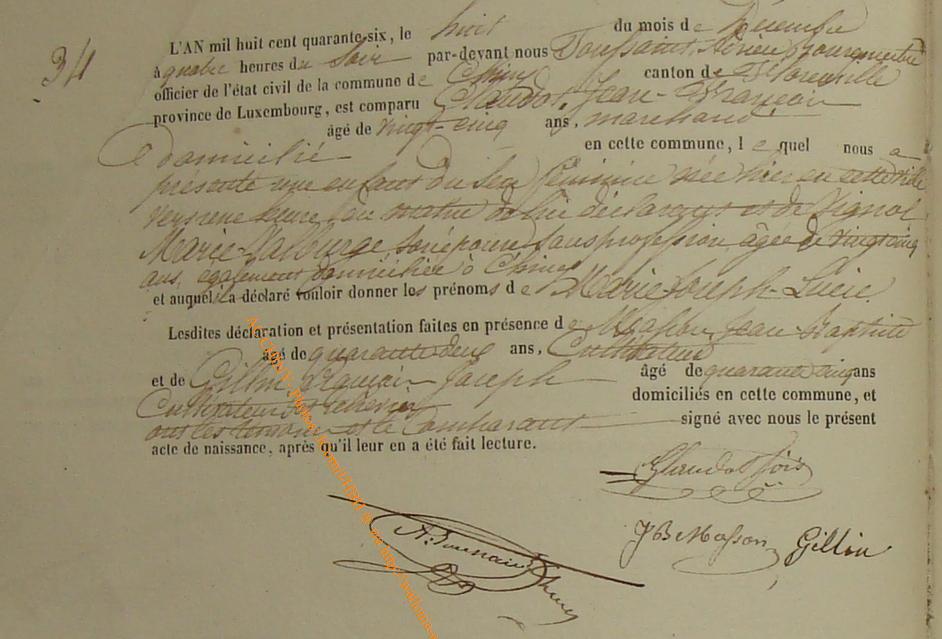 34
L'AN mil huit cent quarante-six, le huit du mois de Décembre
à quatre heures du Soir par-devant nous Toussaint, Adrien
officier de l'état civil de la commune de Chiny canton de Florenville
province de Luxembourg, est comparu Claudot, Jean-François
âgé de vingt-cinq ans, marchand
domicilié en cette commune, lequel nous a
présenté une enfant du sexe féminin née hier en cette ville
vers une heure du matin de lui déclarant et de Pignol
Marie-Walburge son épouse sans profession, âgée de vingt cinq
ans, également domiciliée à Chiny
et auquel il a déclaré vouloir donner les prénoms de Marie-Joseph-Lucie
Lesdites déclaration et présentation faites en présence de Masson, Jean-Baptiste
âgé de quarante-deux ans, Cultivateur
et de Gillin Joseph âgé de quarante cinq ans
Cultivateur domiciliés en cette commune, et
ont les témoins et le Comparant signé avec nous le présent
acte de naissance, après qu'il leur en a été fait lecture.
Claudot fçois
JB Masson Gillin